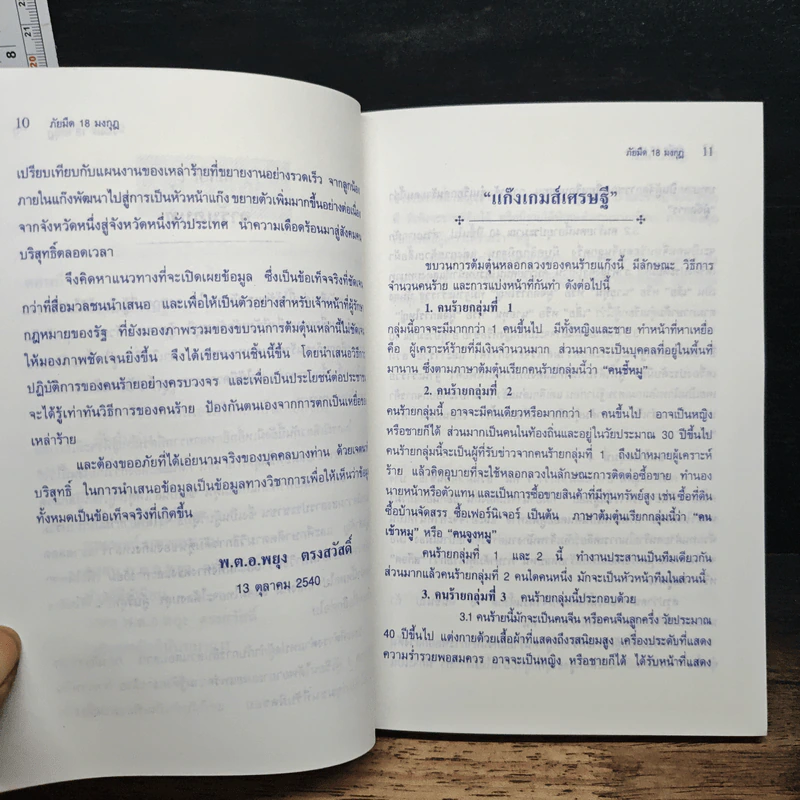 10 ภัยมืด 18 มงกุฎ
เปรียบเทียบกับแผนงานของเหล่าร้ายที่ขยายงานอย่างรวดเร็ว จากลูกน้อง
ภายในแก๊งพัฒนาไปสู่การเป็นหัวหน้าแก๊ง ขยายตัวเพิ่มมากขึ้นอย่างต่อเนื่อง
จากจังหวัดหนึ่งสู่จังหวัดหนึ่งทั่วประเทศ นำความเดือดร้อนมาสู่สังคมคน
บริสุทธิ์ตลอดเวลา
จึงคิดหาแนวทางที่จะเปิดเผยข้อมูล ซึ่งเป็นข้อเท็จจริงที่ชัดเจน
กว่าที่สื่อมวลชนนำเสนอ และเพื่อให้เป็นตัวอย่างสำหรับเจ้าหน้าที่ผู้รักษา
กฎหมายของรัฐ ที่ยังมองภาพรวมของขบวนการต้มตุ๋นเหล่านี้ไม่ชัดเจน
ให้มองภาพชัดเจนยิ่งขึ้น จึงได้เขียนงานชิ้นนี้ขึ้น โดยนำเสนอวิธีการ
ปฏิบัติการของคนร้ายอย่างครบวงจร และเพื่อเป็นประโยชน์ต่อประชาชน
จะได้รู้เท่าทันวิธีการของคนร้าย ป้องกันตนเองจากการตกเป็นเหยื่อของ
เหล่าร้าย
และต้องขออภัยที่ได้เอ่ยนามจริงของบุคคลบางท่าน ด้วยเจตนา
บริสุทธิ์ ในการนำเสนอข้อมูลเป็นข้อมูลทางวิชาการเพื่อให้เห็นว่าข้อมูล
ทั้งหมดเป็นข้อเท็จจริงที่เกิดขึ้น
พ.ต.อ.พยุง ตรงสวัสดิ์
13 ตุลาคม 2540
ภัยมืด 18 มงกุฎ 11
“แก๊งเกมส์เศรษฐี”
ขบวนการต้มตุ๋นหลอกลวงของคนร้ายแก๊งนี้ มีลักษณะ วิธีการ
จำนวนคนร้าย และการแบ่งหน้าที่กันทำ ดังต่อไปนี้
1. คนร้ายกลุ่มที่ 1
กลุ่มนี้อาจจะมีมากกว่า 1 คนขึ้นไป มีทั้งหญิงและชาย ทำหน้าที่หาเหยื่อ
คือ ผู้เคราะห์ร้ายที่มีเงินจำนวนมาก ส่วนมากจะเป็นบุคคลที่อยู่ในพื้นที่
มานาน ซึ่งตามภาษาต้มตุ๋นเรียกคนร้ายกลุ่มนี้ว่า “คนชี้หมู”
2. คนร้ายกลุ่มที่ 2
คนร้ายกลุ่มนี้ อาจจะมีคนเดียวหรือมากกว่า 1 คนขึ้นไป อาจเป็นหญิง
หรือชายก็ได้ ส่วนมากเป็นคนในท้องถิ่นและอยู่ในวัยประมาณ 30 ปีขึ้นไป
คนร้ายกลุ่มนี้จะเป็นผู้ที่รับข่าวจากคนร้ายกลุ่มที่ 1 ถึงเป้าหมายผู้เคราะห์
ร้าย แล้วคิดอุบายที่จะใช้หลอกลวงในลักษณะการติดต่อซื้อขาย ทำนอง
นายหน้าหรือตัวแทน และเป็นการซื้อขายสินค้าที่มีทุนทรัพย์สูง เช่น ซื้อที่ดิน
ซื้อบ้านจัดสรร ซื้อเฟอร์นิเจอร์ เป็นต้น ภาษาต้มตุ๋นเรียกกลุ่มนี้ว่า “คน
เข้าหมู” หรือ “คนจูงหมู”
คนร้ายกลุ่มที่ 1 และ 2 นี้ ทำงานประสานเป็นทีมเดียวกัน
ส่วนมากแล้วคนร้ายกลุ่มที่ 2 คนใดคนหนึ่ง มักจะเป็นหัวหน้าทีมในส่วนนี้
3. คนร้ายกลุ่มที่ 3 คนร้ายกลุ่มนี้ประกอบด้วย
3.1 คนร้ายนี้มักจะเป็นคนจีน หรือคนจีนลูกครึ่ง วัยประมาณ
40 ปีขึ้นไป แต่งกายด้วยเสื้อผ้าที่แสดงถึงรสนิยมสูง เครื่องประดับที่แสดง
ความร่ำรวยพอสมควร อาจจะเป็นหญิง หรือชายก็ได้ ได้รับหน้าที่แสดง
8
20
21